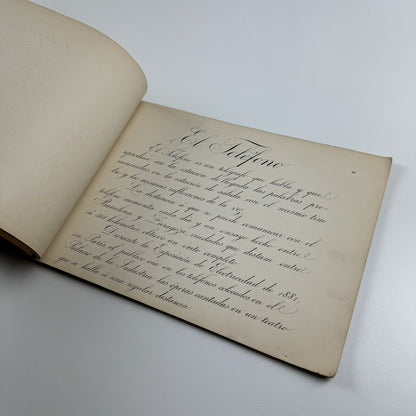 El Teléfono
El Teléfono es un telégrafo que habla y que
reproduce en la estación de llegada las palabras pro-
nunciadas en la estación de salida con el mismo tim-
bre y las mismas inflexiones de la voz.
La distancia á que se puede comunicar con el
teléfono aumenta cada día y un ensayo hecho entre
Barcelona y Zaragoza, ciudades que distan entre
si 364 kilometros obtuvo un éxito completo.
Durante la Exposición de Electricidad de 1881,
en París el público oía en los teléfonos colocados en el
Palacio de la Industria las óperas cantadas en un teatro
que se halla á una regular distancia.